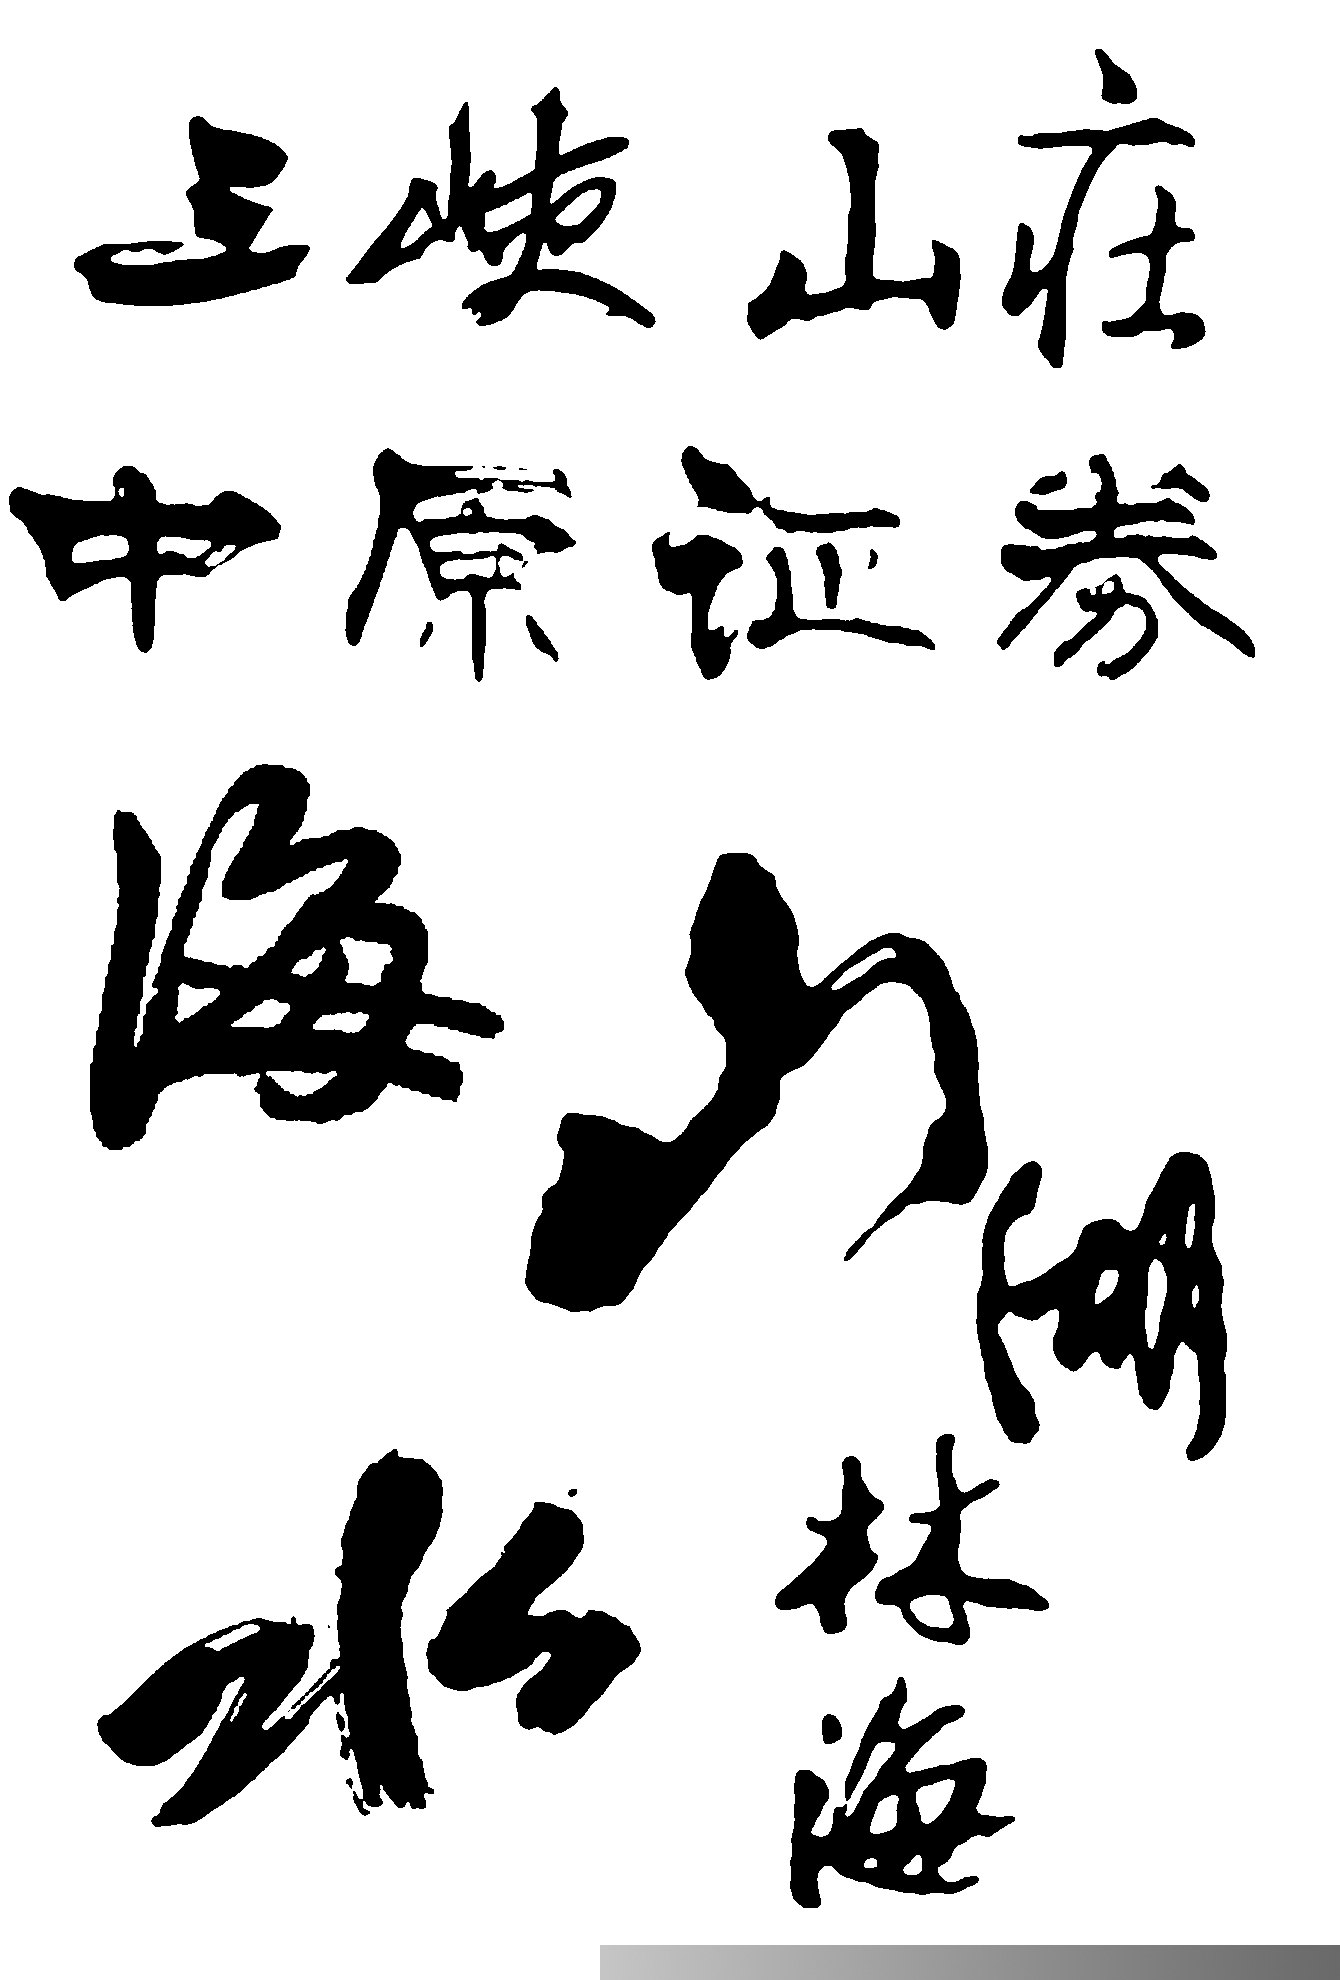 三峡山庄
中原证券
海山湖
水
林
海